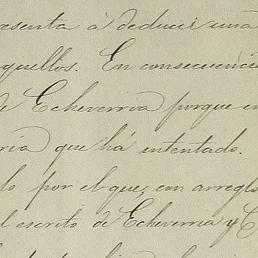 esenta á deducir una
quellos. En consecuenci
de Echeverria porque en
ría que há intentado.
do por el que, con arreglo
l escrito de Echeverria y C